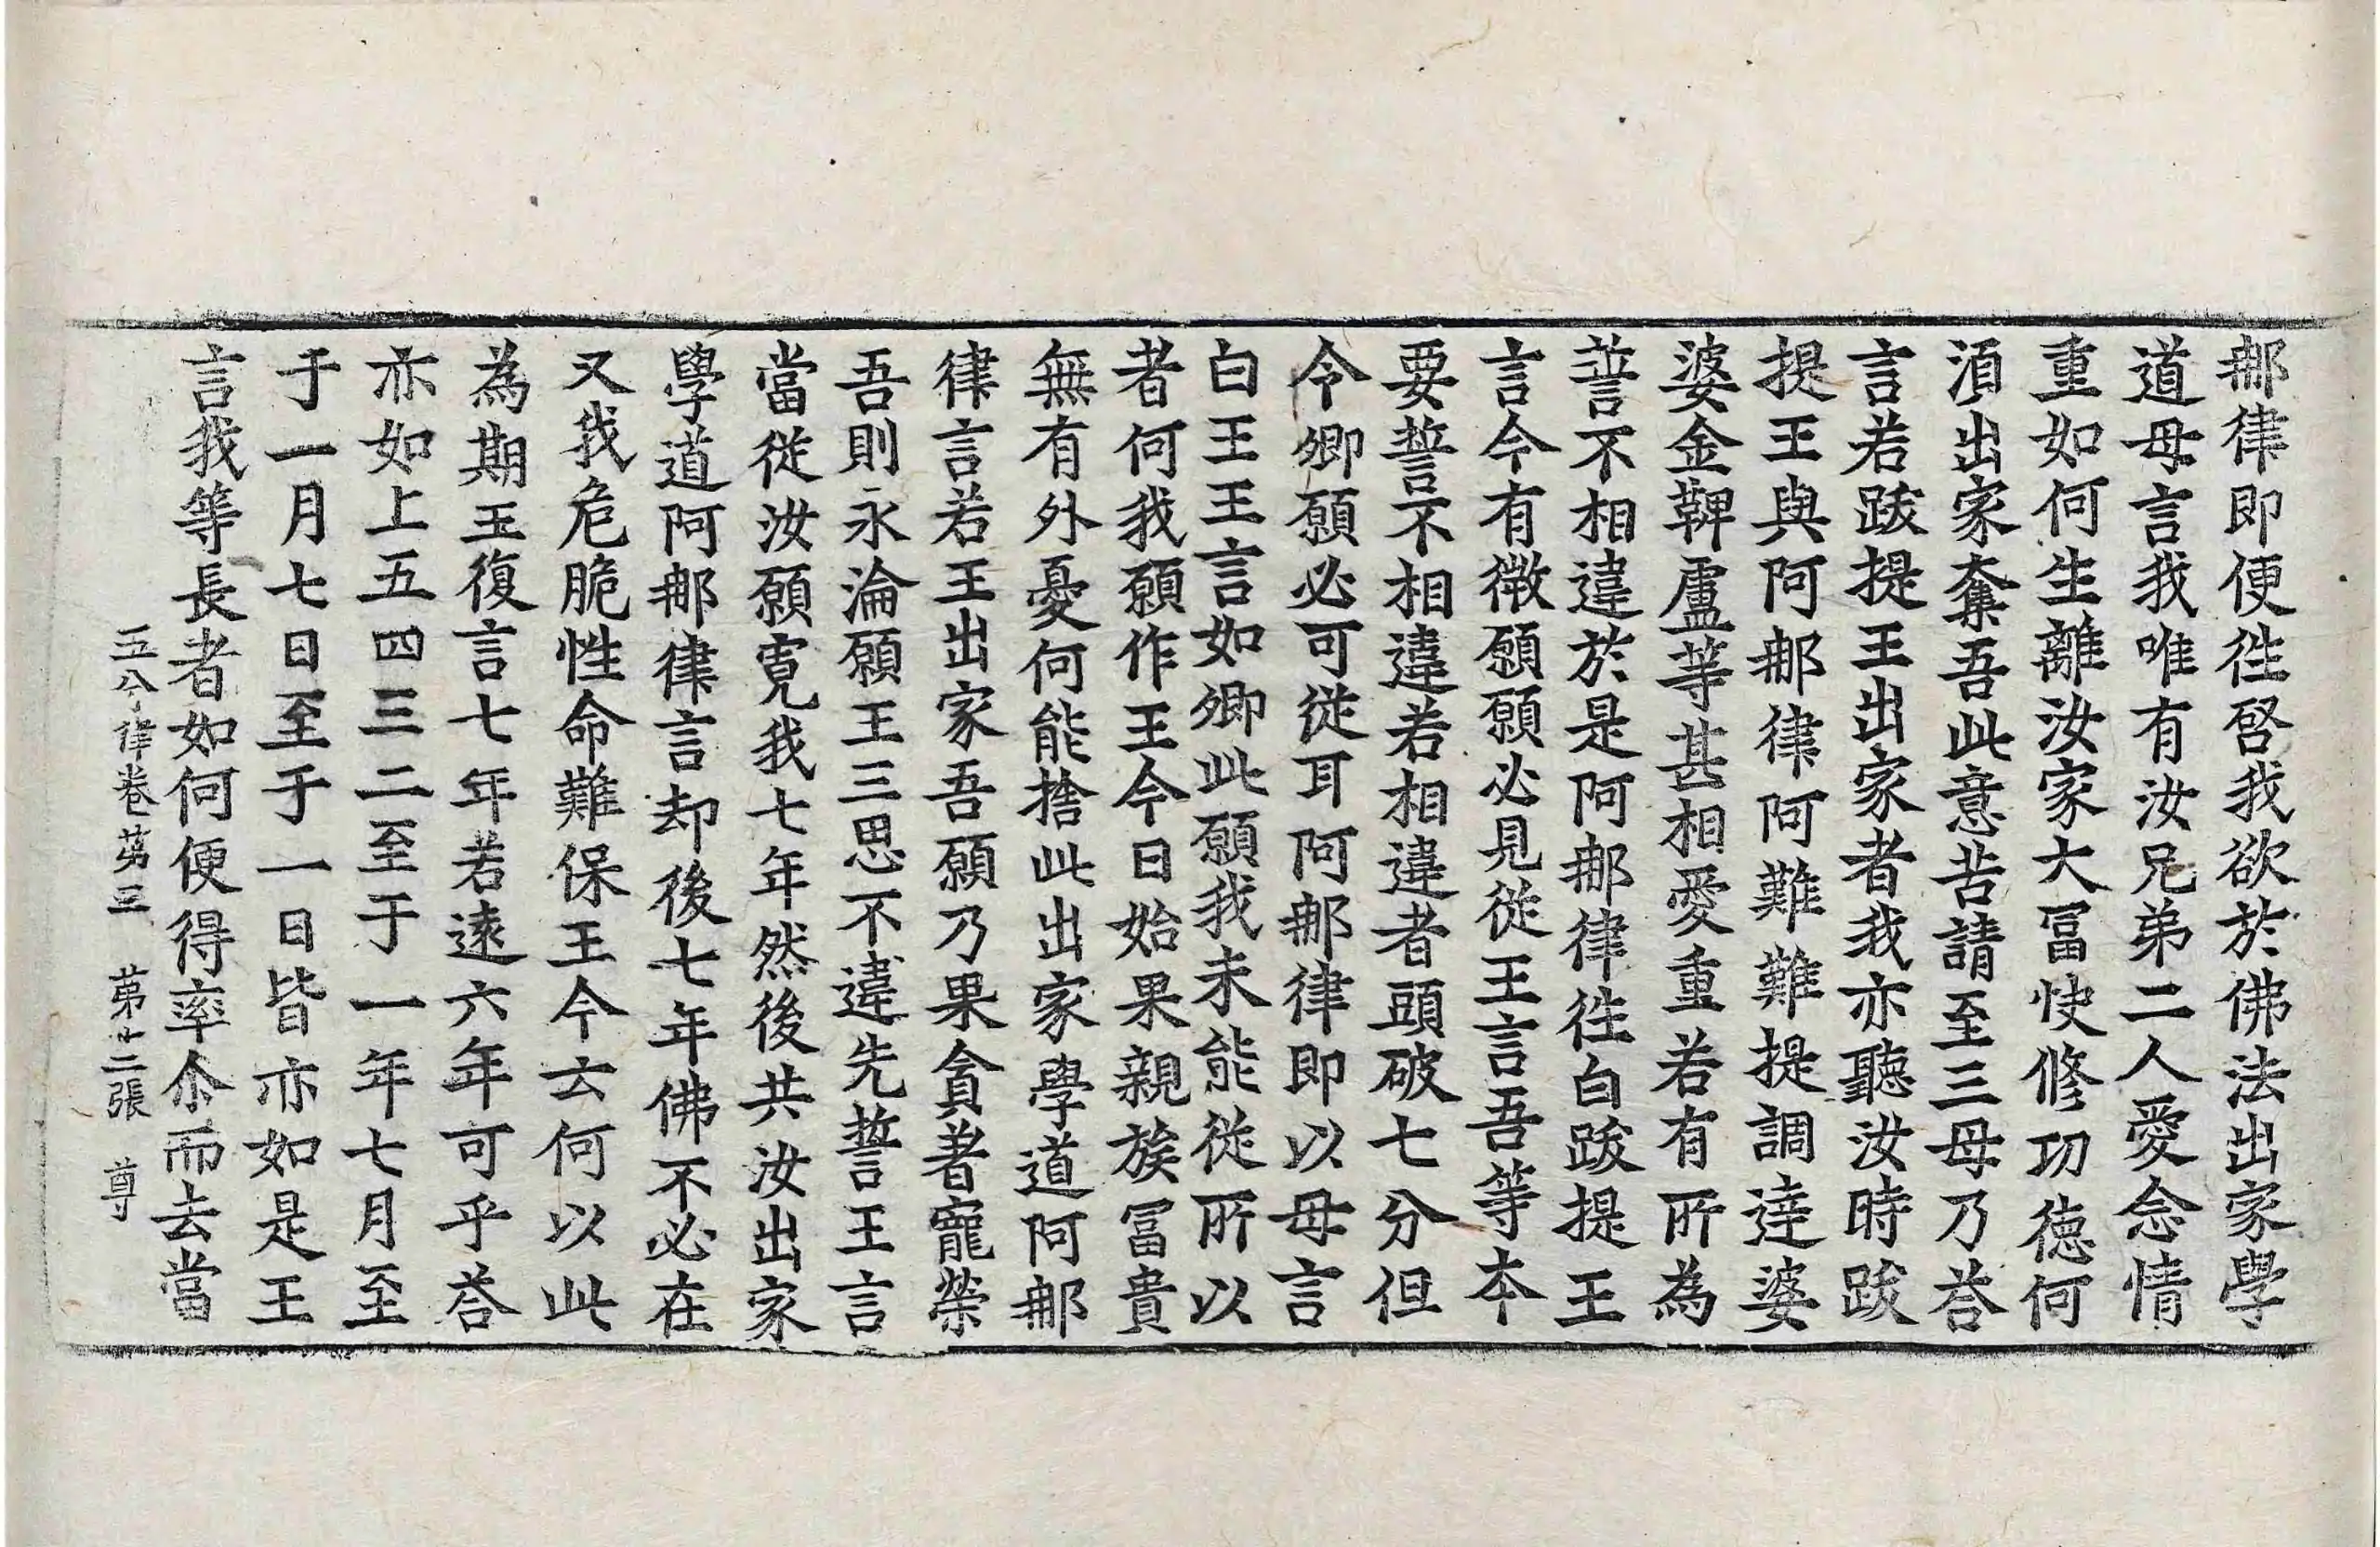 那律即便徃啓我欲於佛法出家學
道母言我唯有汝兄弟二人愛念情
重如何生離汝家大冨快修功德何
湏出家奪吾此意苦請至三母乃荅
言若跋提王出家者我亦聽汝時跋
提王與阿那律阿難難提調達婆
婆金鞞盧等甚相愛重若有所為
誓不相違於是阿那律徃白跋提王
言今有微願願必見從王言吾等本
要誓不相違若相違者頭破七分但
令卿願必可從耳阿那律即以母言
白王王言如卿此願我未能從所以
者何我願作王今日始果親族冨貴
無有外憂何能捨此出家學道阿那
律言若王出家吾願乃果貪著寵榮
吾則永淪願王三思不違先誓王言
當從汝願寬我七年然後共汝出家
學道阿那律言却後七年佛不必在
又我危脆性命難保王今云何以此
為期王復言七年若遠六年可乎荅
亦如上五四三二至于一年七月至
于一月七日至于一日皆亦如是王
言我等長者如何便得率尒而去當
五分律卷第三　第十二張　尊